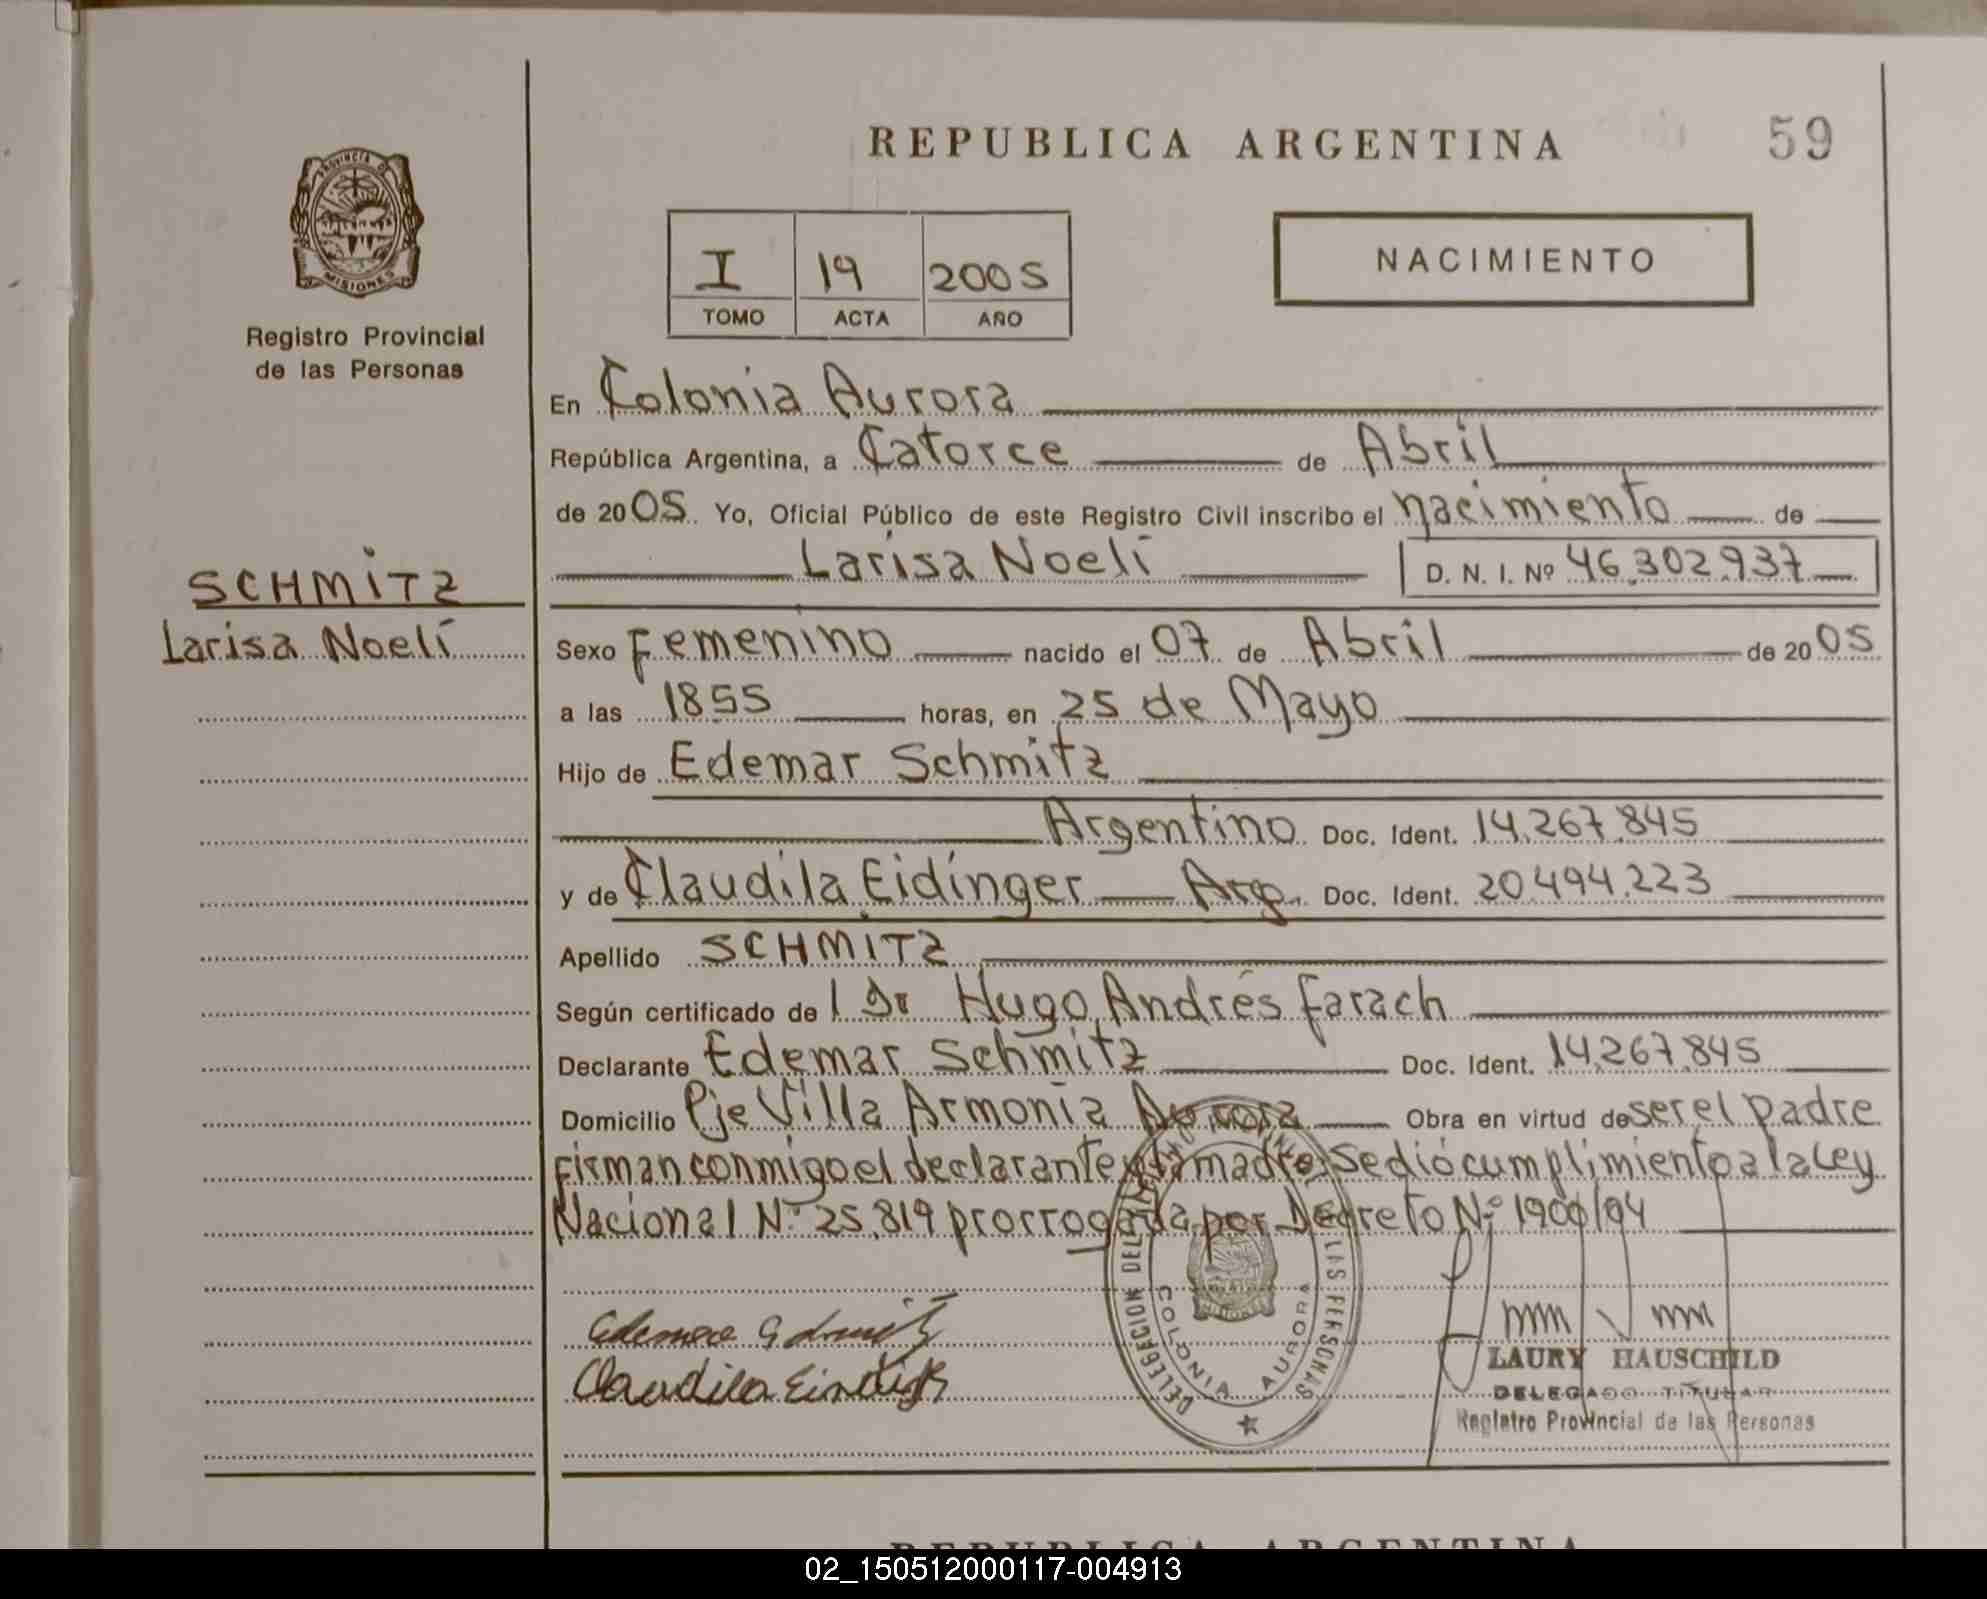 REPUBLICA ARGENTINA 59
PROVINCIA DE
MISIONES
Registro Provincial
de las Personas
I 19 2005
TOMO ACTA AÑO
NACIMIENTO
En Colonia Aurora
República Argentina, a Catorce de Abril
de 2005 Yo, Oficial Público de este Registro Civil inscribo el nacimiento de
Larisa Noelí D. N. I. Nº 46.302.937
SCHMITZ
Larisa Noelí
Sexo Femenino nacido el 07 de Abril de 2005
a las 1855 horas, en 25 de Mayo
Hijo de Edemar Schmitz
Argentino Doc. Ident. 14.267.845
y de Claudila Eidinger Arg. Doc. Ident. 20.494.223
Apellido SCHMITZ
Según certificado de l Dr Hugo Andrés Farach
Declarante Edemar Schmitz Doc. Ident. 14.267.845
Domicilio Pje Villa Armonía Aurora Obra en virtud de ser el padre
firman conmigo el declarante y la madre. Se dió cumplimiento a la Ley
Nacional Nº 25.819 prorrogada por Decreto Nº 1900/04
DELEGACION DEL REGISTRO PROVINCIAL DE LAS PERSONAS
COLONIA AURORA
LAURY HAUSCHILD
DELEGADO TITULAR
Registro Provincial de las Personas
REPUBLICA ARGENTINA
02_150512000117-004913